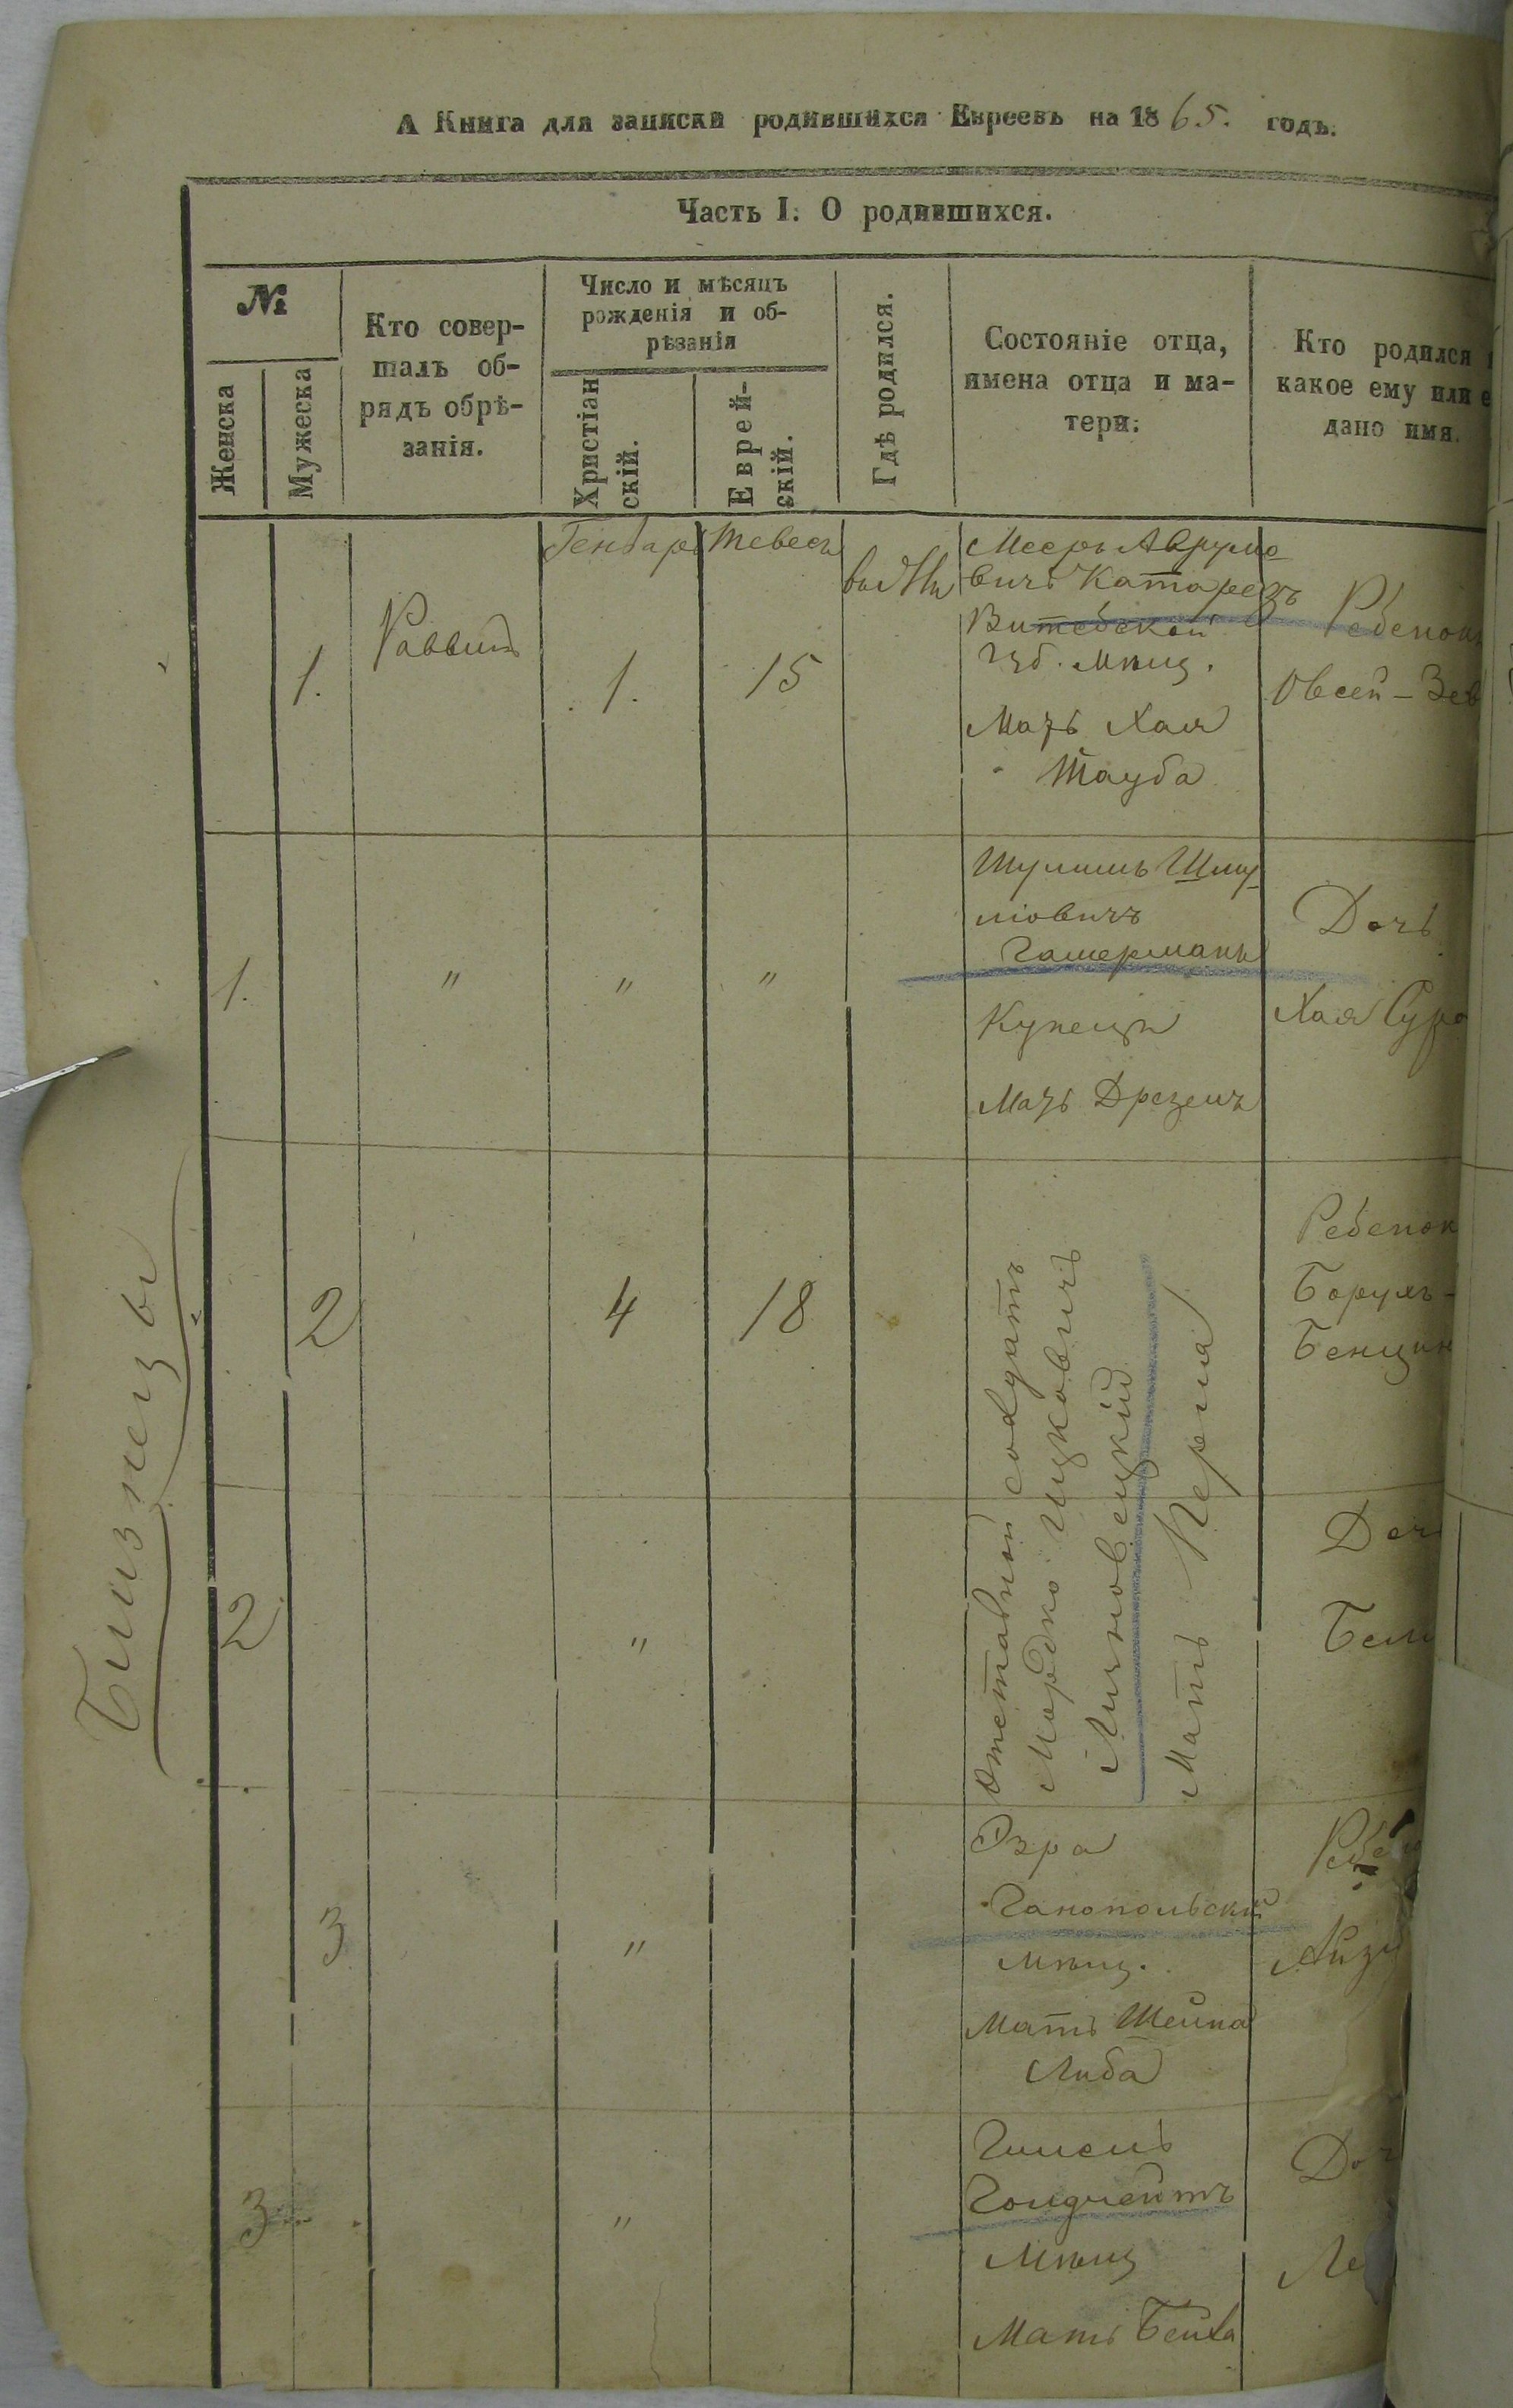 А Книга для записки родившихся Евреевъ на 1865. годъ.
Часть I. О родившихся.
№
Женска
Мужеска
Кто совер-
шалъ об-
рядъ обрѣ-
занія.
Число и мѣсяцъ
рожденія и об-
рѣзанія
Христіан
скій.
Еврей-
скій.
Гдѣ родился.
Состояніе отца,
имена отца и ма-
тери.
Кто родился
какое ему или е
дано имя.
1.
Раввинъ
Генваря
1.
Тевесъ
15
Мееръ Аврумо
вичъ
Витебской
Губ. мѣщ.
Мать Хая
Тауба
Ребенокъ
Овсей-Зев
1.
"
"
"
Шмy
ліовичъ
Гашерманъ
Купецъ
Мать Дрезель
Дочь
Хая Сура
Близнецы
2
4
18
Отставной солдатъ
Мордко Ицковичъ
Мать Перля
Ребенок
Борухъ-
Бенцин
2
"
Доч
Бейл
3
"
Эзра
Ганопольскій
мѣщ.
Мать Шейна
Либа
Ребе
Айзи
3
"
Гошель
Голдчейтъ
Мѣщ
Мать Бейла
До
Ле